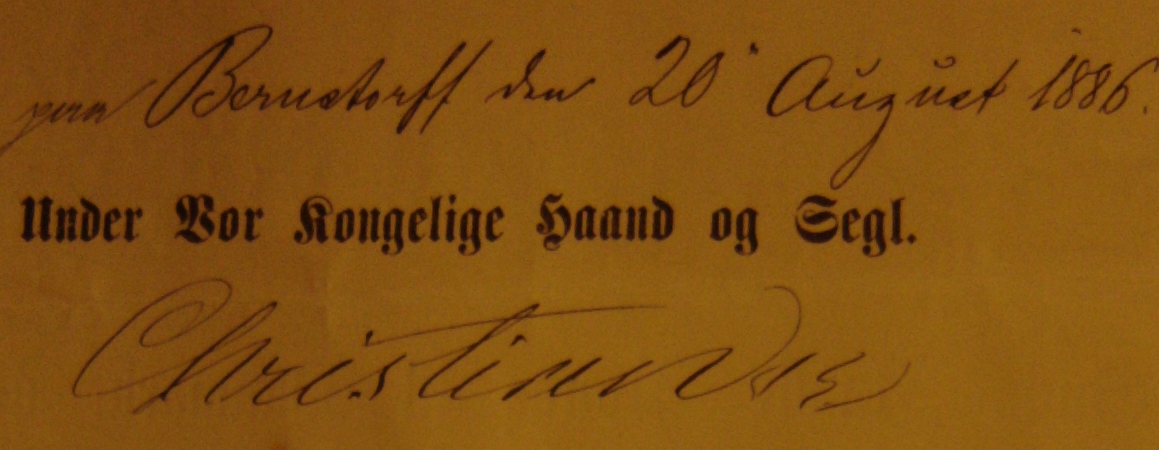 paa Bernstorff den 20' August 1886.
Under Vor Kongelige Haand og Segl.
Christian R